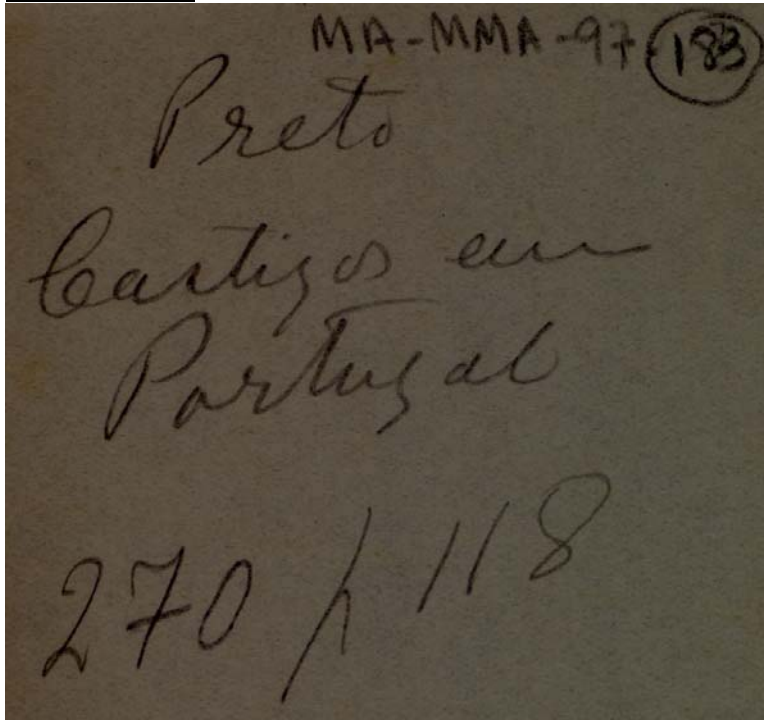 MA-MMA-97-183
Preto
Castigos em
Portugal
270 / 118